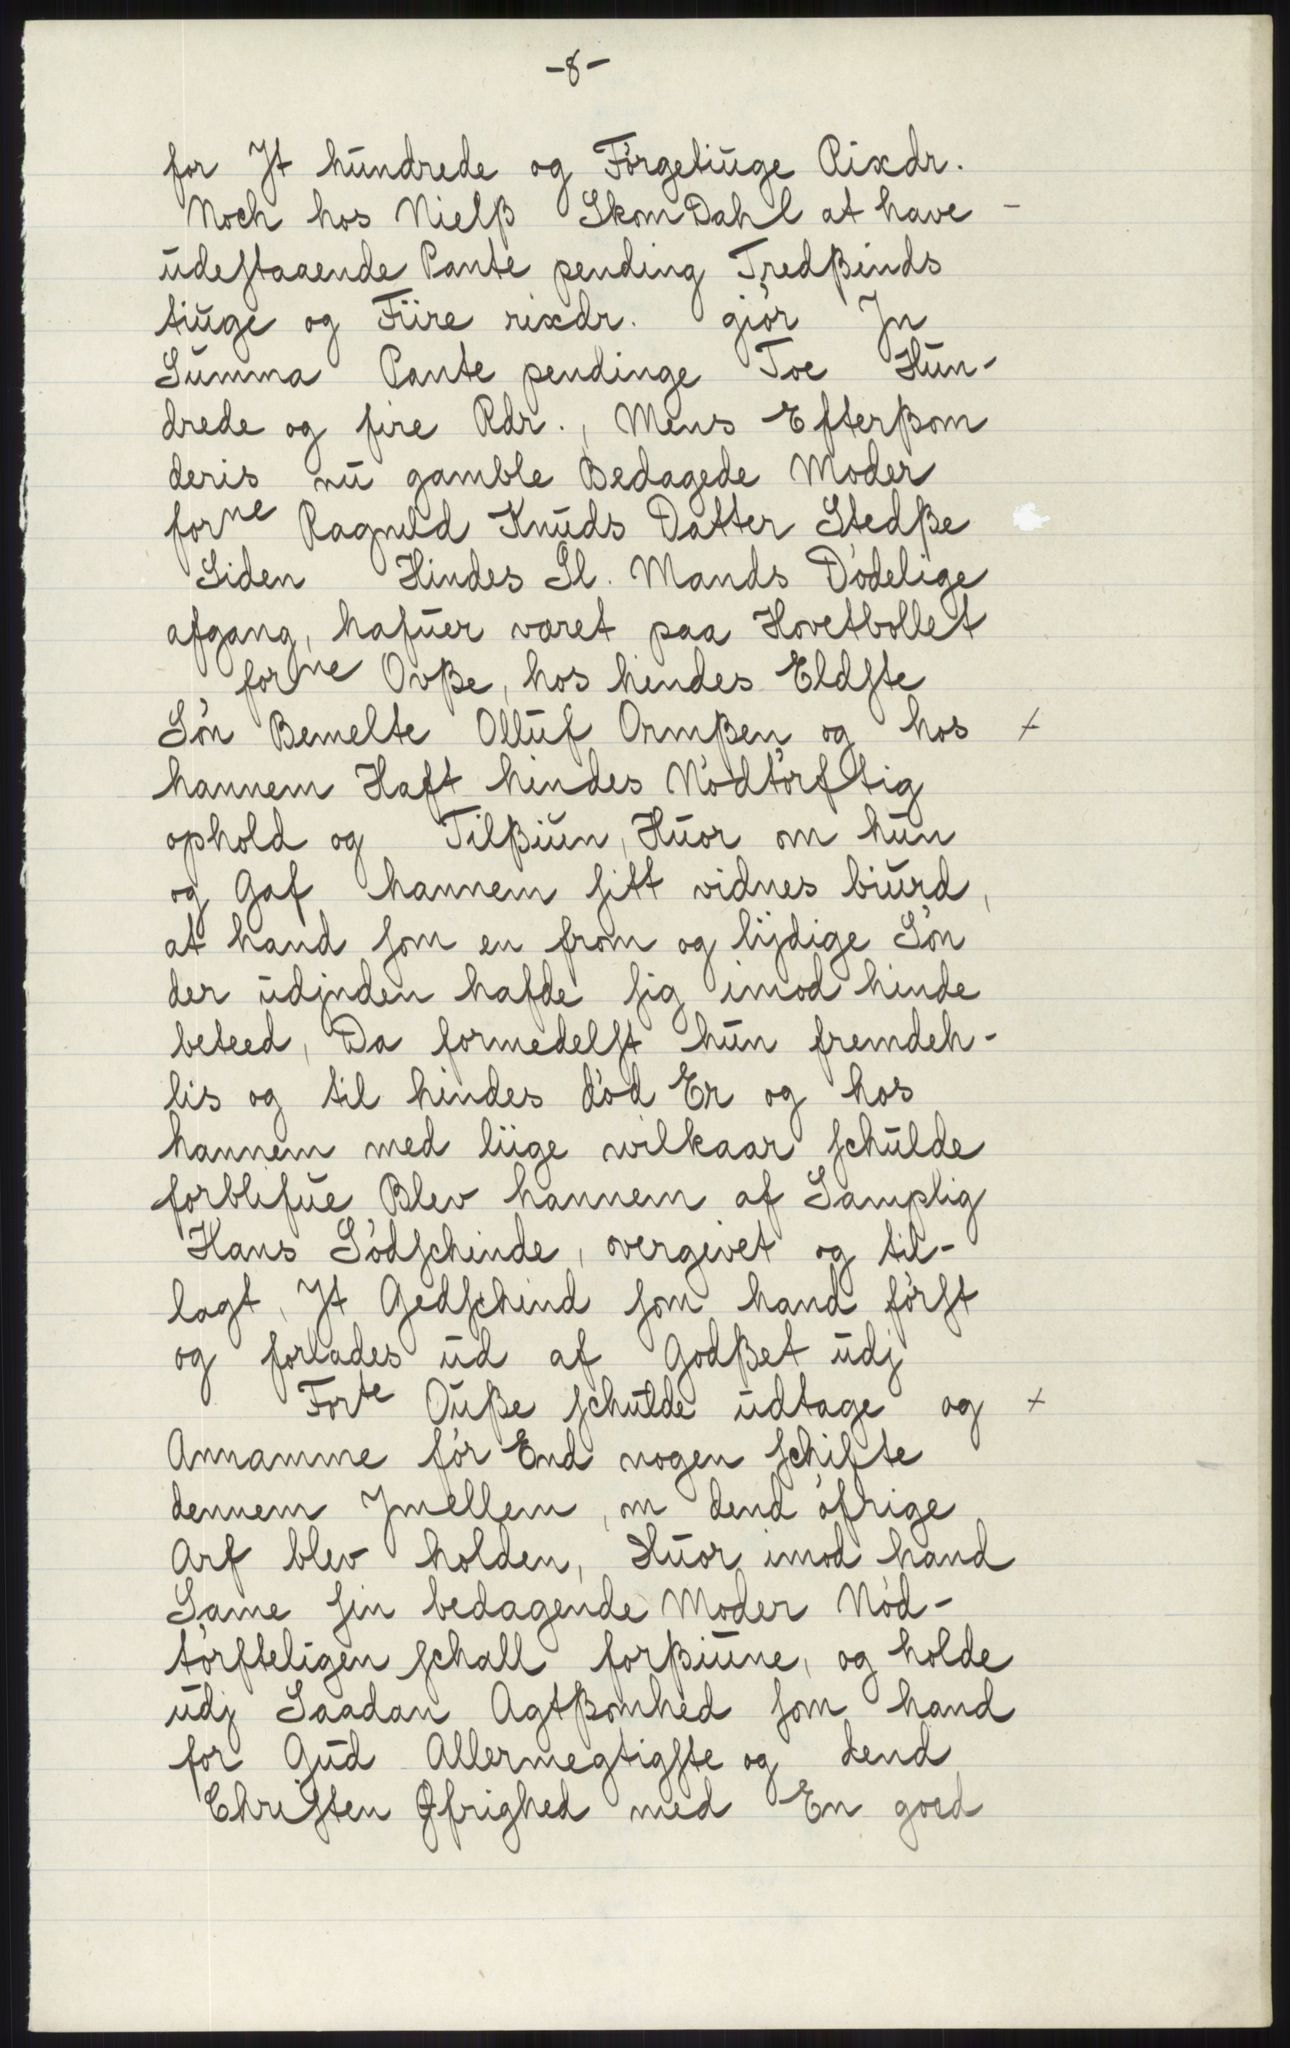 -8-
for Jt hundrede og Förgetiuge Rixdr.
Noch hos Nielß SkomDahl at have -
udeftaaende Pante pending Tredßinds
tiuge og Fiire rixdr. giör Jn
Summa Pante pendinge Toe Hun-
drede og fire Rdr., Mens Efterßom
deris nu gamble Bedagede Moder
forne Ragnild Knuds Datter Stedße
Siden Hindes Sl. Mands Dödelige
afgang, hafuer været paa Hovetbollet
forne Ovße, hos hindes Eldste
Sön Bemelte Olluf Ormßen og hos +
hannem Haft hindes Nödtörftig
ophold og Tilßiun, Huor om hun
og Gaf hannem sitt vidnes biurd,
at hand som en from og lydige Sön
der udjnden hafde sig imod hinde
beteed, Da formedelst hun fremdeh-
lis og til hindes död Er og hos
hannem med liige wilkaar schulde
forblifue Blev hannem af Samplig
Hans Södschinde, overgivet og til-
lagt, Jt Gedschind som hand först
og forlades ud af Godßet udj
Forte Oußе schulde udtage og +
Annamme för End nogen schifte
dennem Jmellem, om dend öfrige
Arf blev holden, Huor imod hand
Same sin bedagende Moder Nöd-
törfteligen schall forßiune, og holde
udj Saadan Agtßomhed som hand
for Gud Allermegtigste og dend
Christen Øfrighed med En goed